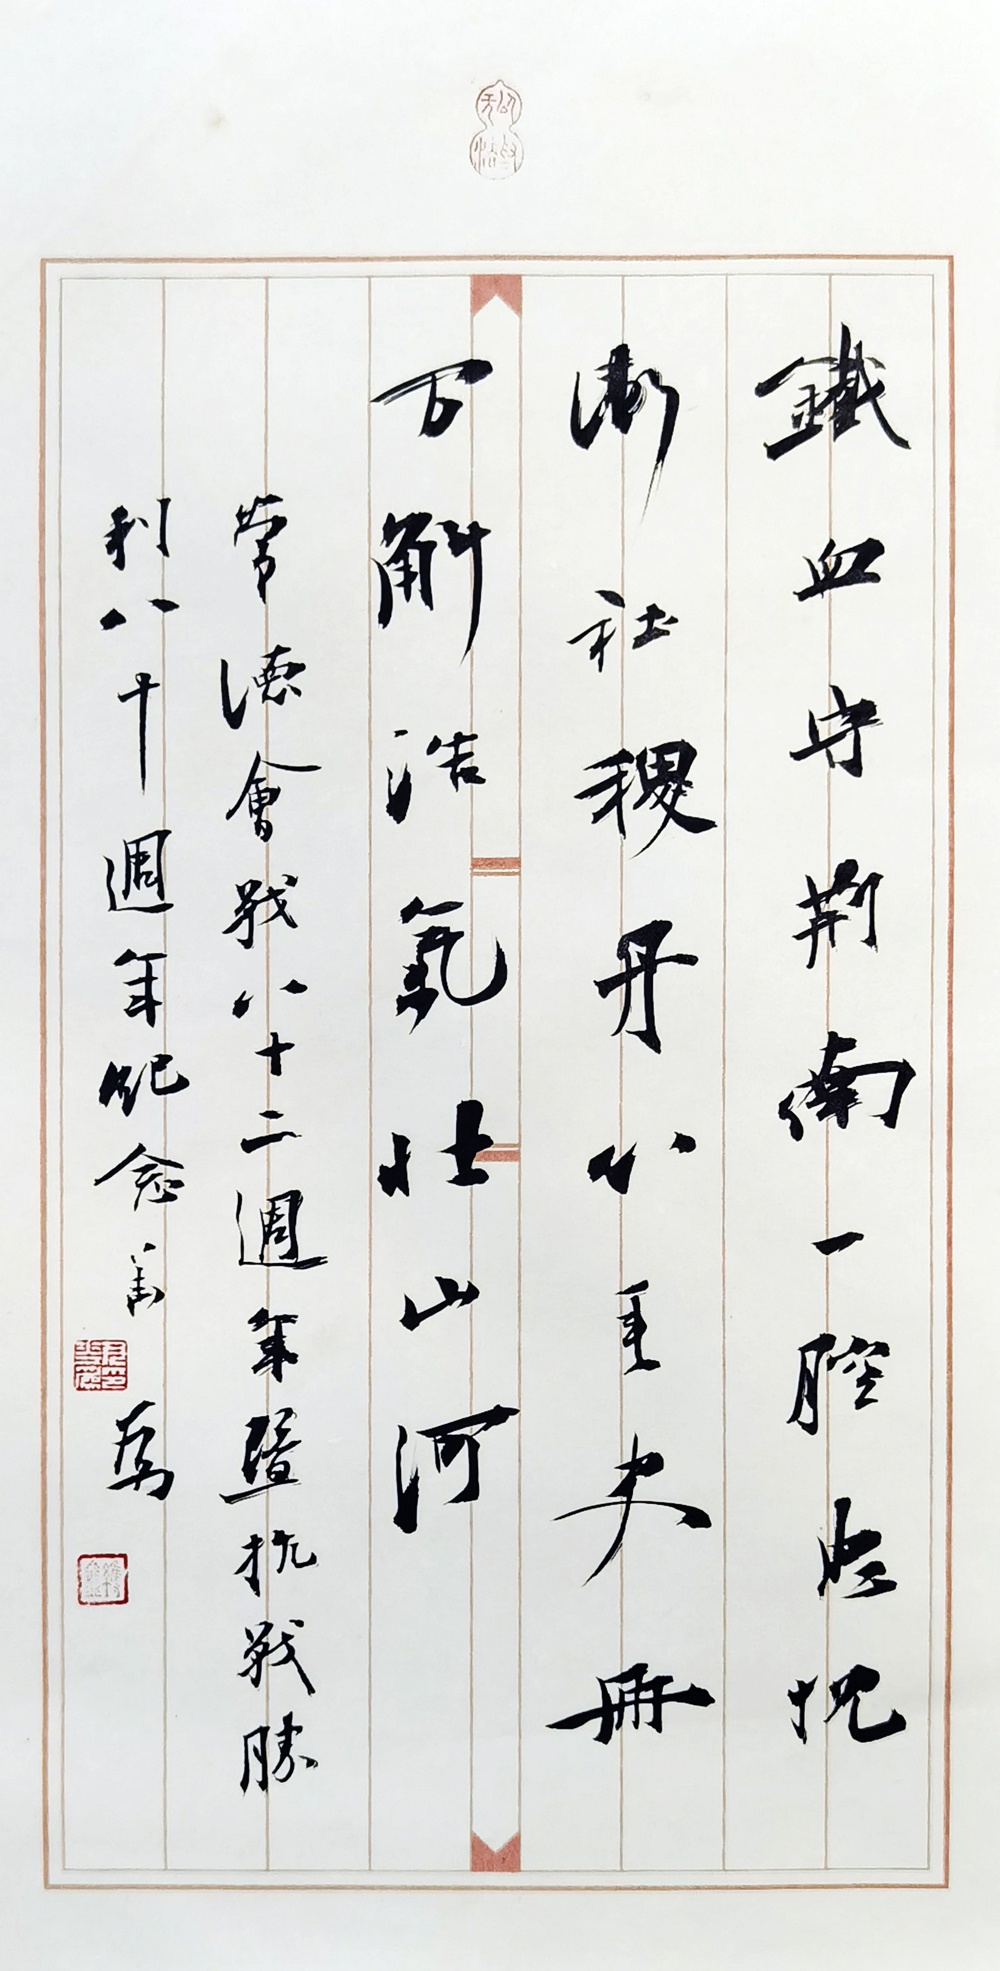 鐵血守荆南一腔忠忱
衛社稷丹心垂史冊
万斛浩氣壯山河
常德會戰八十二週年暨抗戰勝
利八十週年紀念